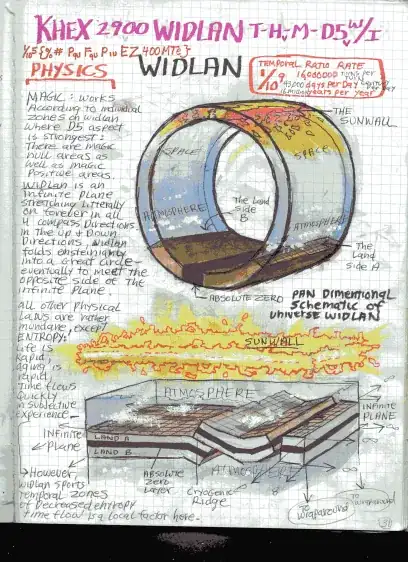 KHEX 2900 WIDLAN T-H-M-D5 W/I
EZ 400 MTS }
PHYSICS
WIDLAN
TEMPORAL RATIO RATE
1/10 9
16,000,000
43,000 days per Day
years per year
MAGIC: WORKS
ACCORDING TO individual
zones on widlan
where D5 aspect
is strongest:
There are magic
null areas as
well as magic
Positive areas.
WIDLAN is an
infinite plane
stretching literally
on forever in all
4 compass Directions.
in the Up & Down
Directions, Widlan
folds
into a Great Circle
eventually to meet the
opposite side of the
infinite Plane.
all other Physical
Laws are rather
mundane, except
ENTROPY:
Life is
Rapid,
aging is
rapid,
Time flows
Quickly
in subjective
experience
→However
widlan sports
Temporal zones
of Decreased entropy
time flow is a local factor here.
THE SUNWALL
SPACE
SPACE
ATMOSPHERE
The Land
side
B
ATMOSPHERE
The
Land
side A
ABSOLUTE ZERO
PAN DIMENTIONAL
SCHEMATIC OF
UNIVERSE WIDLAN
SUNWALL
ATMOSPHERE
INFINITE
PLANE
Infinite
Plane
LAND A
LAND B
ABSOLUTE
ZERO
LAYER
Cryogenic
Ridge
ATMOSPHERE
∞
∞
TO
Wraparound
TO
Wraparound